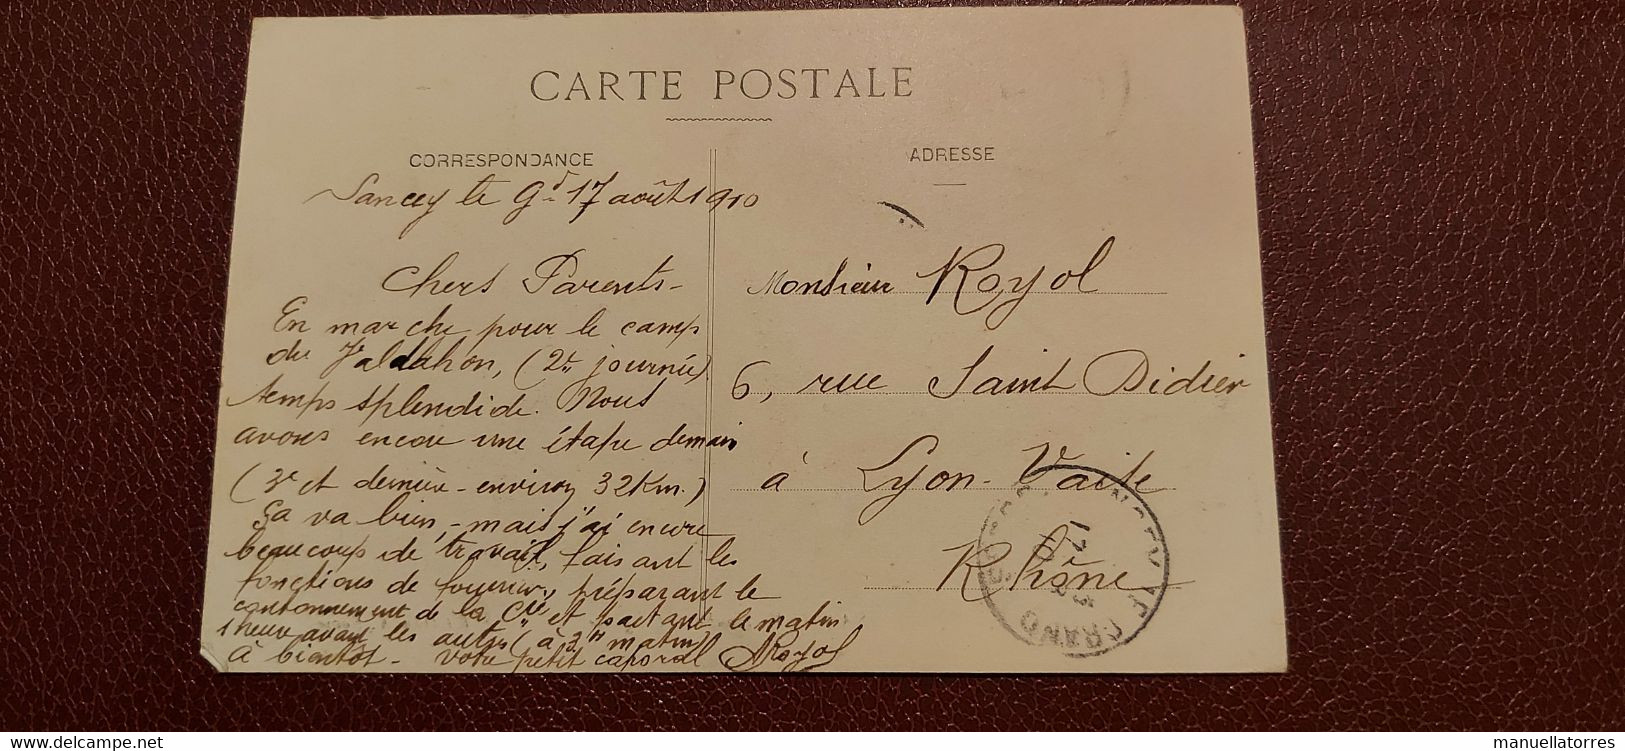 CARTE POSTALE
CORRESPONDANCE
ADRESSE
Sancey le Gd 17 août 1910
Chers Parents -
En marche pour le camp
du Valdahon, (2e journée)
temps splendide. Nous
avons encore une étape demain
(3e et dernière - environ 32 Km.)
Ça va bien, - mais j'ai encore
beaucoup de travail, faisant les
fonctions de fourrier, préparant le
cantonnement de la Cie et partant le matin
1 heure avant les autres (à 3h matin)
à bientôt - votre petit caporal ARoyol
Monsieur Royol
6, rue Saint Didier
à Lyon-Vaise
Rhône
17
GRAND
manuellatorres